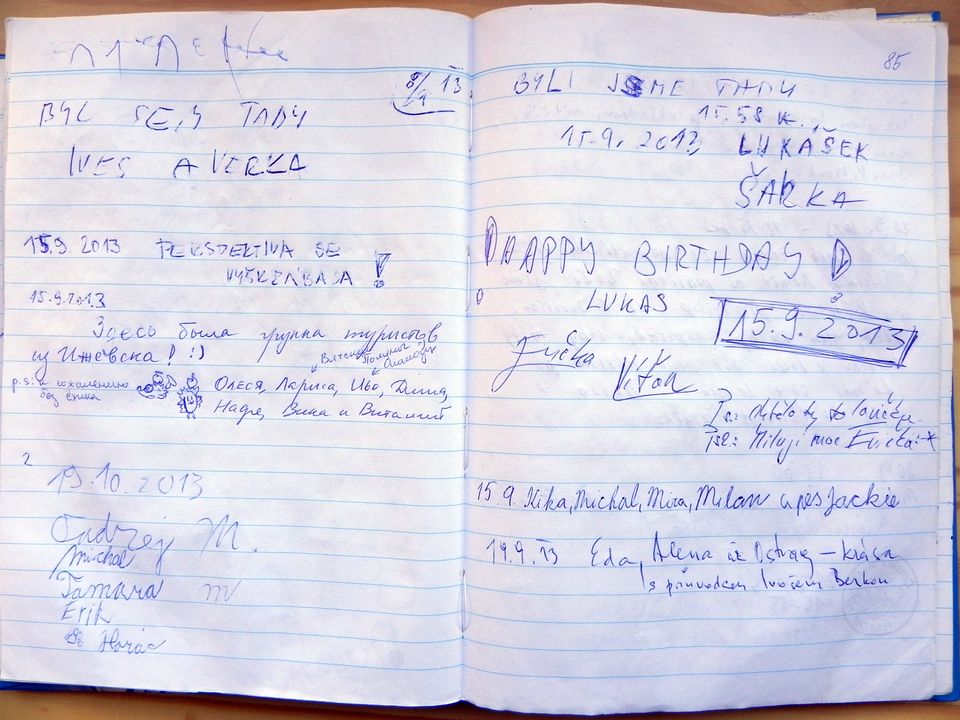 8/9 13
BYL SEM TADY
IVES A VERKA
15.9 2013 PERSPEKTIVA SE
!
15.9.2013
Здесь была группа туристов
из Ижевска! :)
p.s: к сожалению
без ёжика
Олеся, Лариса, Иво, Дима,
Надя, Вика и Виталий
2
19.10.2013
Ondrej M.
Michal
Tamara m
Erik
Horác
85
BYLI JSME TADY
15.58 K.
15.9. 2013, LUKÁŠEK
ŠÁRKA
HAPPY BIRTHDAY
LUKAS
15.9.2013
Evička
Víťa
Ps: Chtělo by to
Ps2: Miluji moc Evičku :-*
15.9. Kika, Michal, Mira, Milan a pes Jackie
19.9.13 Eda, Alena iz Ostrag – krása
s průvodcem Ivošem Berkou